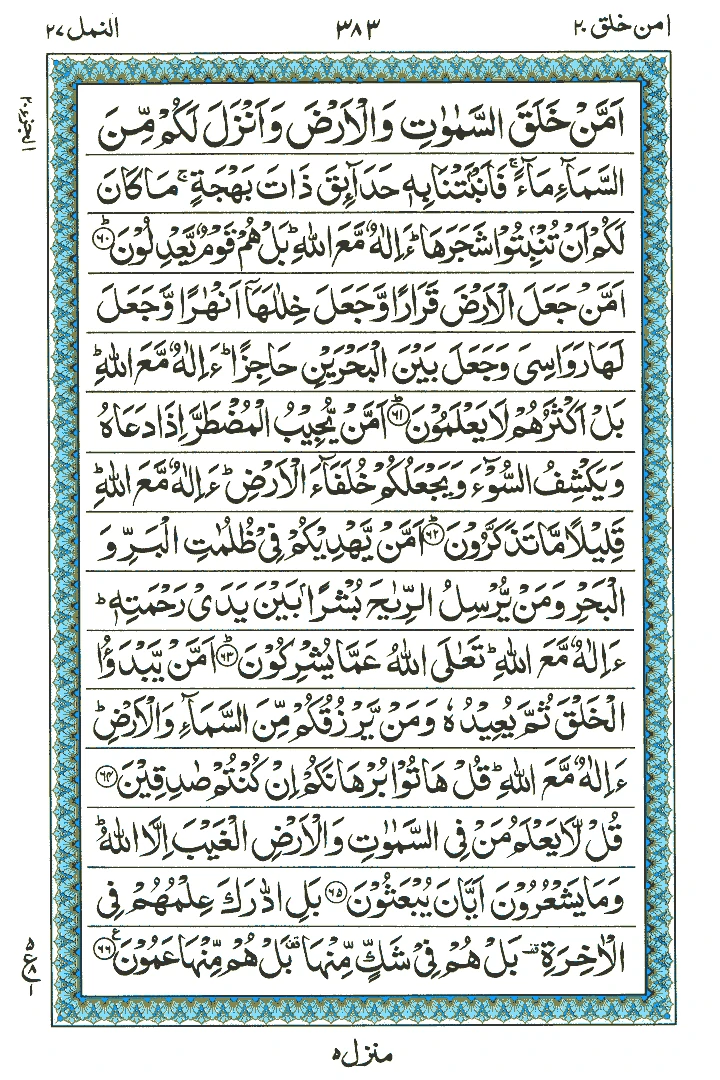 امن خلق ٢٠
٣٨٣
النمل ٢٧
الجزء ٢٠
اَمَّنْ خَلَقَ السَّمٰوٰتِ وَالْاَرْضَ وَاَنْزَلَ لَكُمْ مِّنَ
السَّمَآءِ مَآءً ۚ فَاَنْۢبَتْنَا بِهٖ حَدَآئِقَ ذَاتَ بَهْجَةٍ ۚ مَا كَانَ
لَكُمْ اَنْ تُنْۢبِتُوْا شَجَرَهَا ؕ ءَاِلٰهٌ مَّعَ اللّٰهِ ؕ بَلْ هُمْ قَوْمٌ يَّعْدِلُوْنَ ؕ ﴿٦٠﴾
اَمَّنْ جَعَلَ الْاَرْضَ قَرَارًا وَّجَعَلَ خِلٰلَهَاۤ اَنْهٰرًا وَّجَعَلَ
لَهَا رَوَاسِىَ وَجَعَلَ بَيْنَ الْبَحْرَيْنِ حَاجِزًا ؕ ءَاِلٰهٌ مَّعَ اللّٰهِ ؕ
بَلْ اَكْثَرُهُمْ لَا يَعْلَمُوْنَ ؕ ﴿٦١﴾ اَمَّنْ يُّجِيْبُ الْمُضْطَرَّ اِذَا دَعَاهُ
وَيَكْشِفُ السُّوْٓءَ وَيَجْعَلُكُمْ خُلَفَآءَ الْاَرْضِ ؕ ءَاِلٰهٌ مَّعَ اللّٰهِ ؕ
قَلِيْلًا مَّا تَذَكَّرُوْنَ ؕ ﴿٦٢﴾ اَمَّنْ يَّهْدِيْكُمْ فِىْ ظُلُمٰتِ الْبَرِّ وَ
الْبَحْرِ وَمَنْ يُّرْسِلُ الرِّيٰحَ بُشْرًۢا بَيْنَ يَدَىْ رَحْمَتِهٖ ؕ
ءَاِلٰهٌ مَّعَ اللّٰهِ ؕ تَعٰلَى اللّٰهُ عَمَّا يُشْرِكُوْنَ ؕ ﴿٦٣﴾ اَمَّنْ يَّبْدَؤُا
الْخَلْقَ ثُمَّ يُعِيْدُهٗ وَمَنْ يَّرْزُقُكُمْ مِّنَ السَّمَآءِ وَالْاَرْضِ ؕ
ءَاِلٰهٌ مَّعَ اللّٰهِ ؕ قُلْ هَاتُوْا بُرْهَانَكُمْ اِنْ كُنْتُمْ صٰدِقِيْنَ ﴿٦٤﴾
قُلْ لَّا يَعْلَمُ مَنْ فِى السَّمٰوٰتِ وَالْاَرْضِ الْغَيْبَ اِلَّا اللّٰهُ ؕ
وَمَا يَشْعُرُوْنَ اَيَّانَ يُبْعَثُوْنَ ﴿٦٥﴾ بَلِ ادّٰرَكَ عِلْمُهُمْ فِى
الْاٰخِرَةِ ۫ بَلْ هُمْ فِىْ شَكٍّ مِّنْهَا ۫ بَلْ هُمْ مِّنْهَا عَمُوْنَ ﴿٦٦﴾ ع
٥
ع ٨
١
منزل ٥